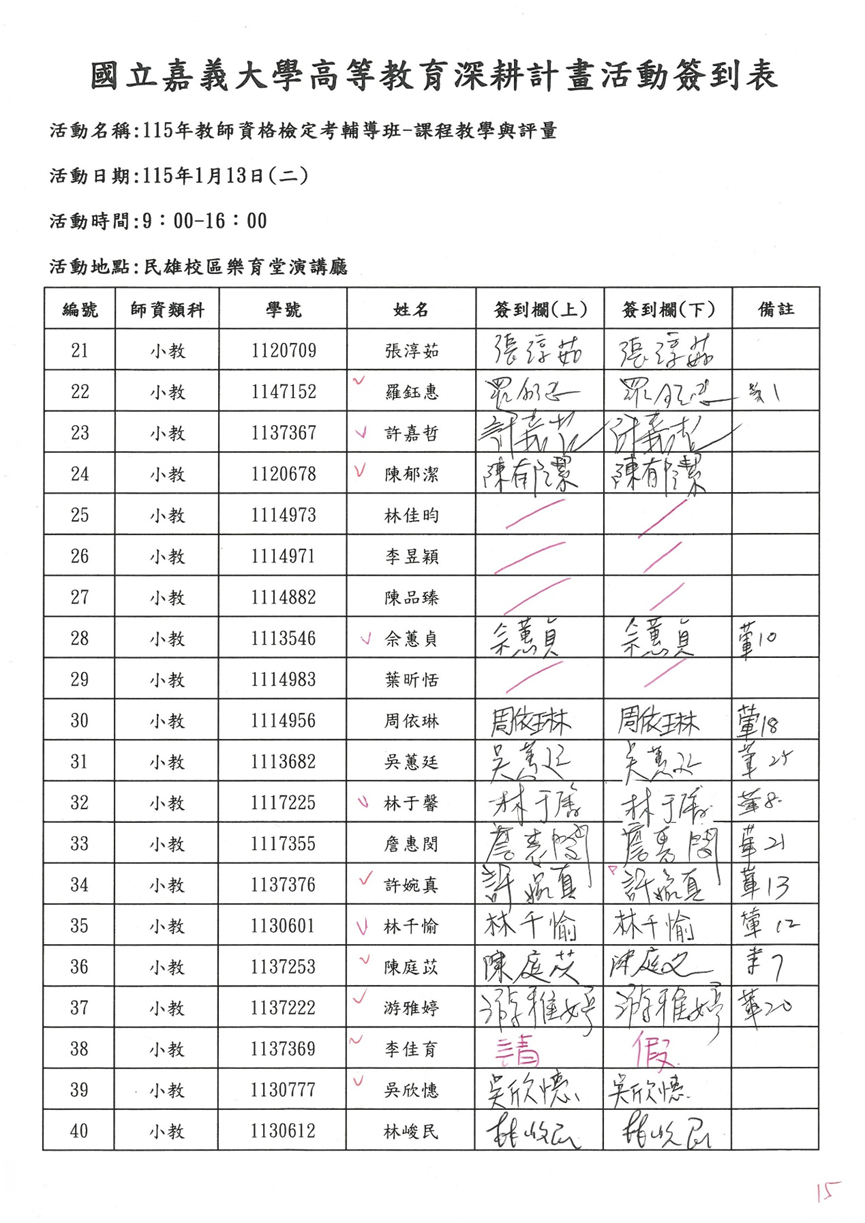 國立嘉義大學高等教育深耕計畫活動簽到表
活動名稱:115年教師資格檢定考輔導班-課程教學與評量
活動日期:115年1月13日(二)
活動時間:9：00-16：00
活動地點:民雄校區樂育堂演講廳
編號 師資類科 學號 姓名 簽到欄(上) 簽到欄(下) 備註
21 小教 1120709 張淳茹 張淳茹 張淳茹
22 小教 1147152 羅鈺惠 羅鈺惠 羅鈺惠 1
23 小教 1137367 許嘉哲 許嘉哲 許嘉哲
24 小教 1120678 陳郁潔 陳郁潔 陳郁潔
25 小教 1114973 林佳昀
26 小教 1114971 李昱穎
27 小教 1114882 陳品臻
28 小教 1113546 佘蕙貞 佘蕙貞 佘蕙貞 葷10
29 小教 1114983 葉昕恬
30 小教 1114956 周依琳 周依琳 周依琳 葷18
31 小教 1113682 吳蕙廷 吳蕙廷 吳蕙廷 葷25
32 小教 1117225 林于馨 林于馨 林于馨 葷8
33 小教 1117355 詹惠閔 詹惠閔 詹惠閔 葷21
34 小教 1137376 許婉真 許婉真 許婉真 葷13
35 小教 1130601 林千愉 林千愉 林千愉 葷12
36 小教 1137253 陳庭苡 陳庭苡 陳庭苡 7
37 小教 1137222 游雅婷 游雅婷 游雅婷 葷20
38 小教 1137369 李佳育 請 假
39 小教 1130777 吳欣憓 吳欣憓 吳欣憓
40 小教 1130612 林峻民 林峻民 林峻民
15